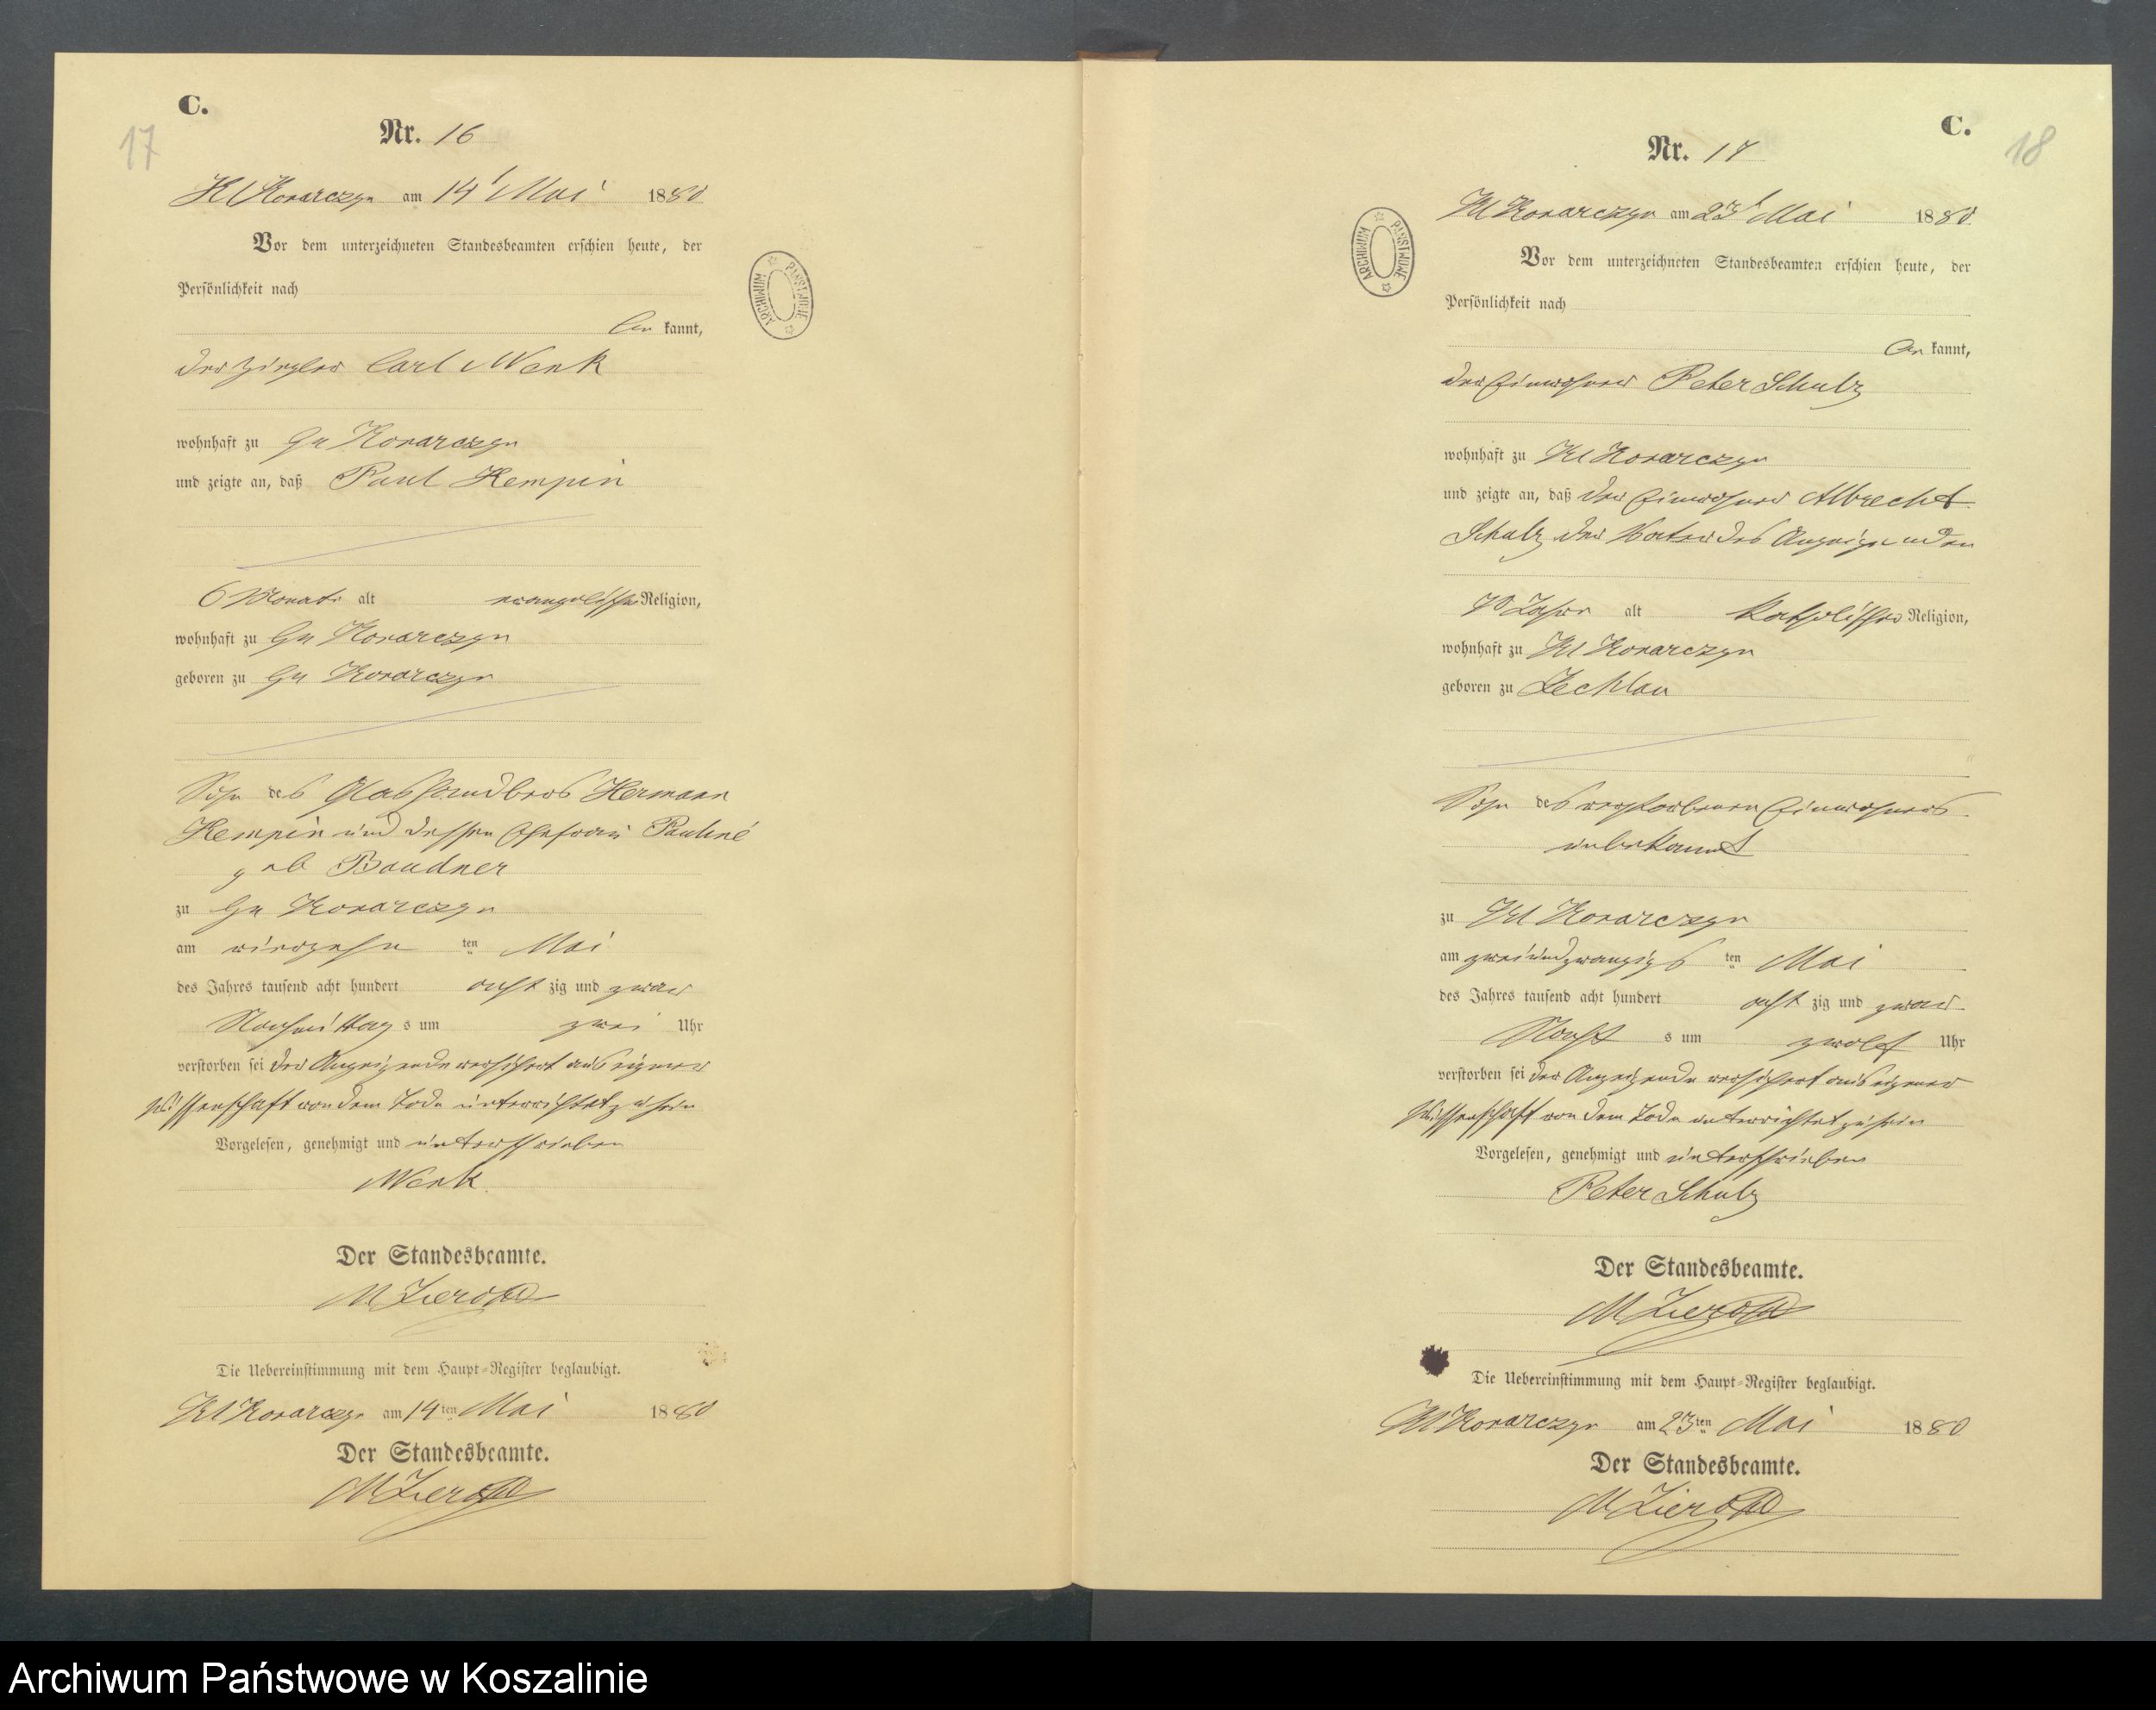 C.
17
Nr. 16
Kl Konarczyn am 14t Mai 1880
Vor dem unterzeichneten Standesbeamten erschien heute, der
Persönlichkeit nach
be kannt,
der Ziegler Carl Wenk
wohnhaft zu Gr Konarczyn
und zeigte an, daß Paul Hempin
6 Monate alt evangelischer Religion,
wohnhaft zu Gr Konarczyn
geboren zu Gr Konarczyn
Sohn des Hermann
Hempin und dessen Ehefrau Pauline
geb Baudner
zu Gr Konarczyn
am vierzehn ten Mai
des Jahres tausend acht hundert acht zig und zwar
Nachmittag s um zwei Uhr
verstorben sei der Anzeigende versichert aus eigener
Wissenschaft von dem Tode unterrichtet zu sein
Vorgelesen, genehmigt und unterschrieben
Wenk
Der Standesbeamte.
Die Uebereinstimmung mit dem Haupt-Register beglaubigt.
Kl Konarczyn am 14ten Mai 1880
Der Standesbeamte.
ARCHIWUM PAŃSTWOWE
C.
18
Nr. 17
Kl Konarczyn am 23t Mai 1880
Vor dem unterzeichneten Standesbeamten erschien heute, der
Persönlichkeit nach
be kannt,
der Einwohner Peter Schulz
wohnhaft zu Kl Konarczyn
und zeigte an, daß der Einwohner Albrecht
Schulz der Vater des Anzeigenden
70 Jahre alt katholischer Religion,
wohnhaft zu Kl Konarczyn
geboren zu Zechlau
Sohn des verstorbenen Einwohners
unbekannt
zu Kl Konarczyn
am zweiundzwanzigs ten Mai
des Jahres tausend acht hundert acht zig und zwar
Nacht s um zwölf Uhr
verstorben sei der Anzeigende versichert aus eigener
Wissenschaft von dem Tode unterrichtet zu sein
Vorgelesen, genehmigt und unterschrieben
Peter Schulz
Der Standesbeamte.
Die Uebereinstimmung mit dem Haupt-Register beglaubigt.
Kl Konarczyn am 23ten Mai 1880
Der Standesbeamte.
ARCHIWUM PAŃSTWOWE
Archiwum Państwowe w Koszalinie